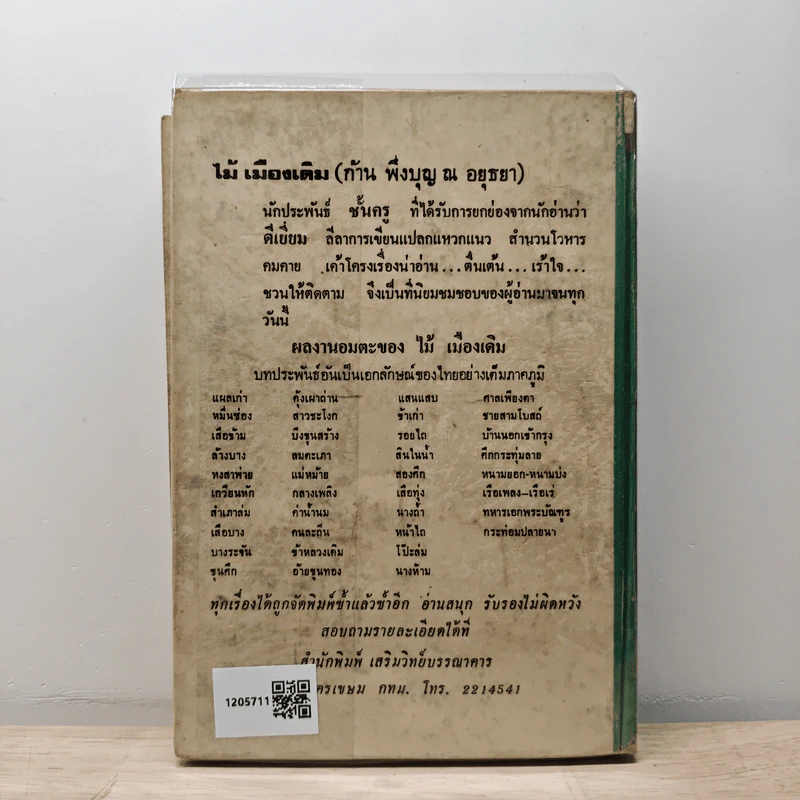 ไม้ เมืองเดิม (ก้าน พึ่งบุญ ณ อยุธยา)
นักประพันธ์ ชั้นครู ที่ได้รับการยกย่องจากนักอ่านว่า
ดีเยี่ยม ลีลาการเขียนแปลกแหวกแนว สำนวนโวหาร
คมคาย เค้าโครงเรื่องน่าอ่าน...ตื่นเต้น...เร้าใจ...
ชวนให้ติดตาม จึงเป็นที่นิยมชมชอบของผู้อ่านมาจนทุก
วันนี้
ผลงานอมตะของ ไม้ เมืองเดิม
บทประพันธ์อันเป็นเอกลักษณ์ของไทยอย่างเต็มภาคภูมิ
แผลเก่า คุ้งเผาถ่าน แสนแสบ ศาลเพียงตา
หมื่นซ่อง สาวชะโงก ข้าเก่า ชายสามโบสถ์
เสือข้าม บึงขุนสร้าง รอยไถ บ้านนอกเข้ากรุง
ล้างบาง ลมตะเภา สินในน้ำ ศึกกระทุ่มลาย
หงสาพ่าย แม่หม้าย สองศึก หนามยอก-หนามบ่ง
เกวียนหัก กลางเพลิง เสือทุ่ง เรือเพลง-เรือเร่
สำเภาล่ม ค่าน้ำนม นางถ้ำ ทหารเอกพระบัณฑูร
เสือบาง คนละถิ่น หน้าไถ กระท่อมปลายนา
บางระจัน ข้าหลวงเดิม โป๊ะล่ม
ขุนศึก อ้ายขุนทอง นางห้าม
ทุกเรื่องได้ถูกจัดพิมพ์ซ้ำแล้วซ้ำอีก อ่านสนุก รับรองไม่ผิดหวัง
สอบถามรายละเอียดได้ที่
สำนักพิมพ์ เสริมวิทย์บรรณาคาร
กทม. โทร. 2214541
1205711